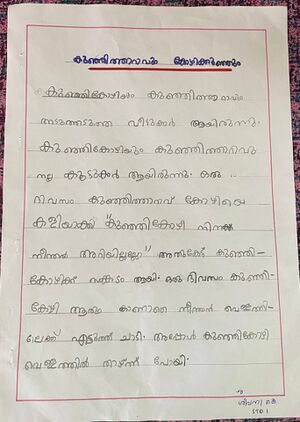 കുഞ്ഞിത്താറാവും കോഴിക്കുഞ്ഞും
കുഞ്ഞികോഴിയും കുഞ്ഞിത്താറാവും
അടുത്തടുത്ത വീടുകൾ ആയിരുന്നു.
കുഞ്ഞികോഴിയും കുഞ്ഞിത്താറാവും
നല്ല കൂട്ടുകാർ ആയിരുന്നു. ഒരു
ദിവസം കുഞ്ഞിത്താറാവ് കോഴിയെ
കളിയാക്കി "കുഞ്ഞികോഴി നിനക്ക്
നീന്തൽ അറിയില്ലല്ലോ" അതുകേട്ട് കുഞ്ഞി-
കോഴിക്ക് സങ്കടം ആയി. ഒരു ദിവസം കുഞ്ഞി-
കോഴി ആരും കാണാതെ നീന്തൻ വെള്ളത്തി-
ലേക്ക് എടുത്ത് ചാടി. അപ്പോൾ കുഞ്ഞികോഴി
വെള്ളത്തിൽ താഴ്ന്ന് പോയി.
STD 1